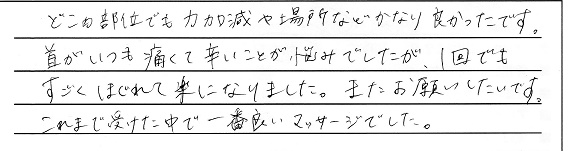 どこの部位でも力加減や場所などかなり良かったです。
首がいつも痛くて辛いことが悩みでしたが、1回でも
すごくほぐれて楽になりました。またお願いしたいです。
これまで受けた中で一番良いマッサージでした。